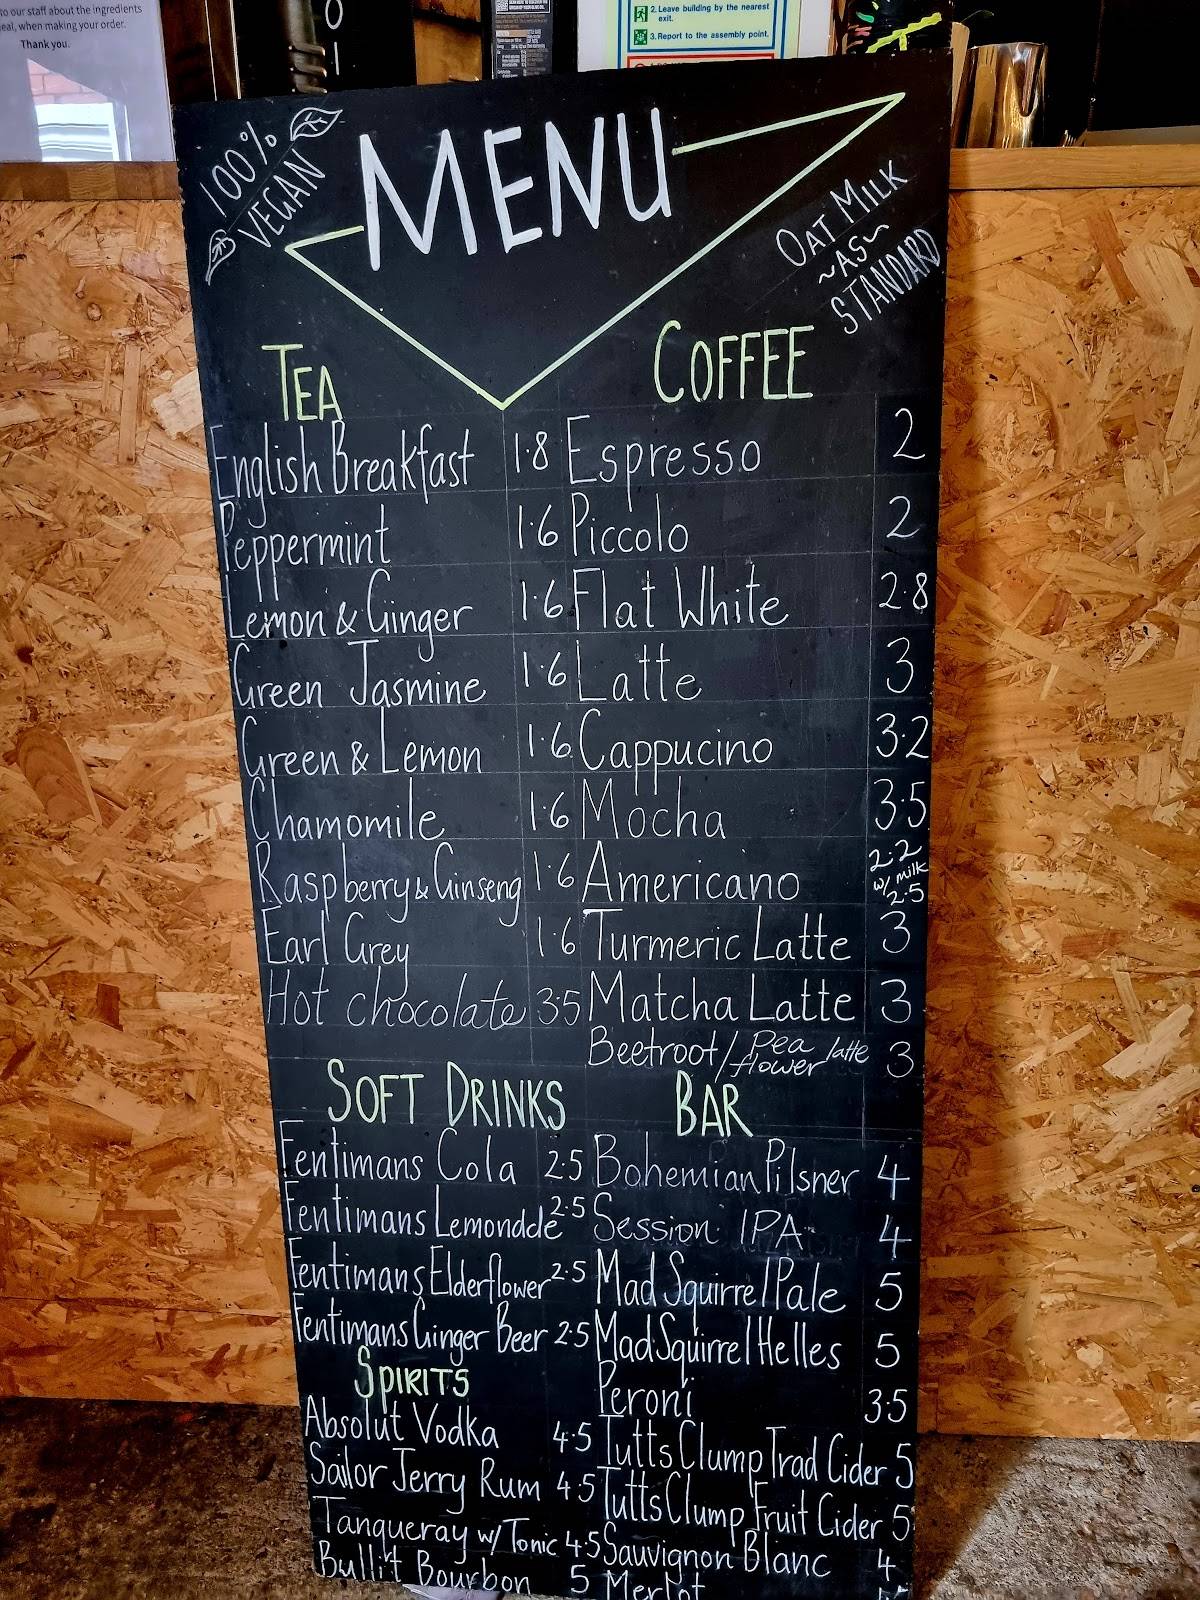 to our staff about the ingredients
meal, when making your order.
Thank you.
2. Leave building by the nearest
exit.
3. Report to the assembly point.
100%
VEGAN
MENU
OAT MILK
~AS~
STANDARD
TEA
English Breakfast 1.8
Peppermint 1.6
Lemon & Ginger 1.6
Green Jasmine 1.6
Green & Lemon 1.6
Chamomile 1.6
Raspberry & Ginseng 1.6
Earl Grey 1.6
Hot chocolate 3.5
COFFEE
Espresso 2
Piccolo 2
Flat White 2.8
Latte 3
Cappucino 3.2
Mocha 3.5
Americano 2.2
w/ milk
2.5
Turmeric Latte 3
Matcha Latte 3
Beetroot/Pea flower latte 3
SOFT DRINKS
Fentimans Cola 2.5
Fentimans Lemonade 2.5
Fentimans Elderflower 2.5
Fentimans Ginger Beer 2.5
SPIRITS
Absolut Vodka 4.5
Sailor Jerry Rum 4.5
Tanqueray w/ Tonic 4.5
Bullit Bourbon 5
BAR
Bohemian Pilsner 4
Session IPA 4
Mad Squirrel Pale 5
Mad Squirrel Helles 5
Peroni 3.5
Tutts Clump Trad Cider 5
Tutts Clump Fruit Cider 5
Sauvignon Blanc 4
Merlot